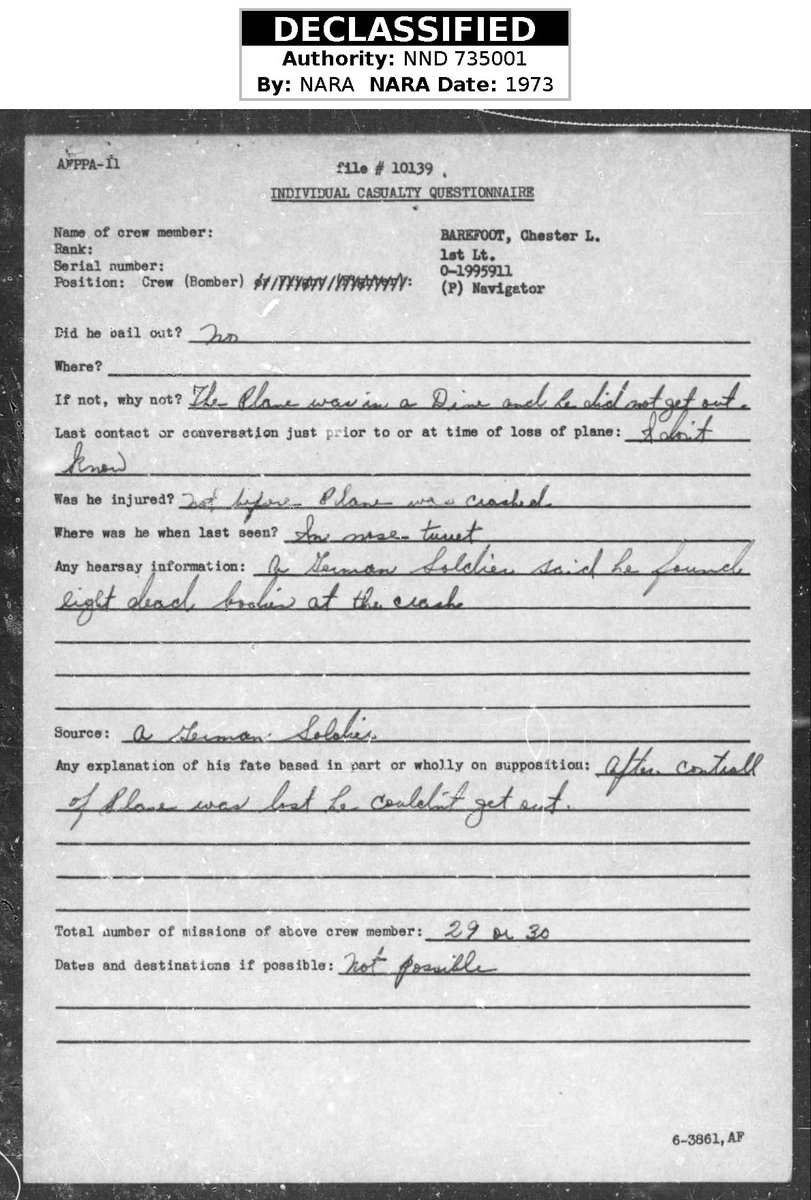 DECLASSIFIED
Authority: NND 735001
By: NARA NARA Date: 1973
AFPPA-11
file # 10139
INDIVIDUAL CASUALTY QUESTIONNAIRE
Name of crew member: BAREFOOT, Chester L.
Rank: 1st Lt.
Serial number: 0-1995911
Position: Crew (Bomber) : (P) Navigator
Did he bail out? no
Where?
If not, why not? The Plane was in a Dive and he did not get out.
Last contact or conversation just prior to or at time of loss of plane: I don't
know
Was he injured? not before Plane was crashed.
Where was he when last seen? In nose turret
Any hearsay information: A German Soldier said he found
eight dead bodies at the crash
Source: A German Soldier
Any explanation of his fate based in part or wholly on supposition: After controll
of Plane was lost he couldn't get out.
Total number of missions of above crew member: 29 or 30
Dates and destinations if possible: Not possible
6-3861,AF